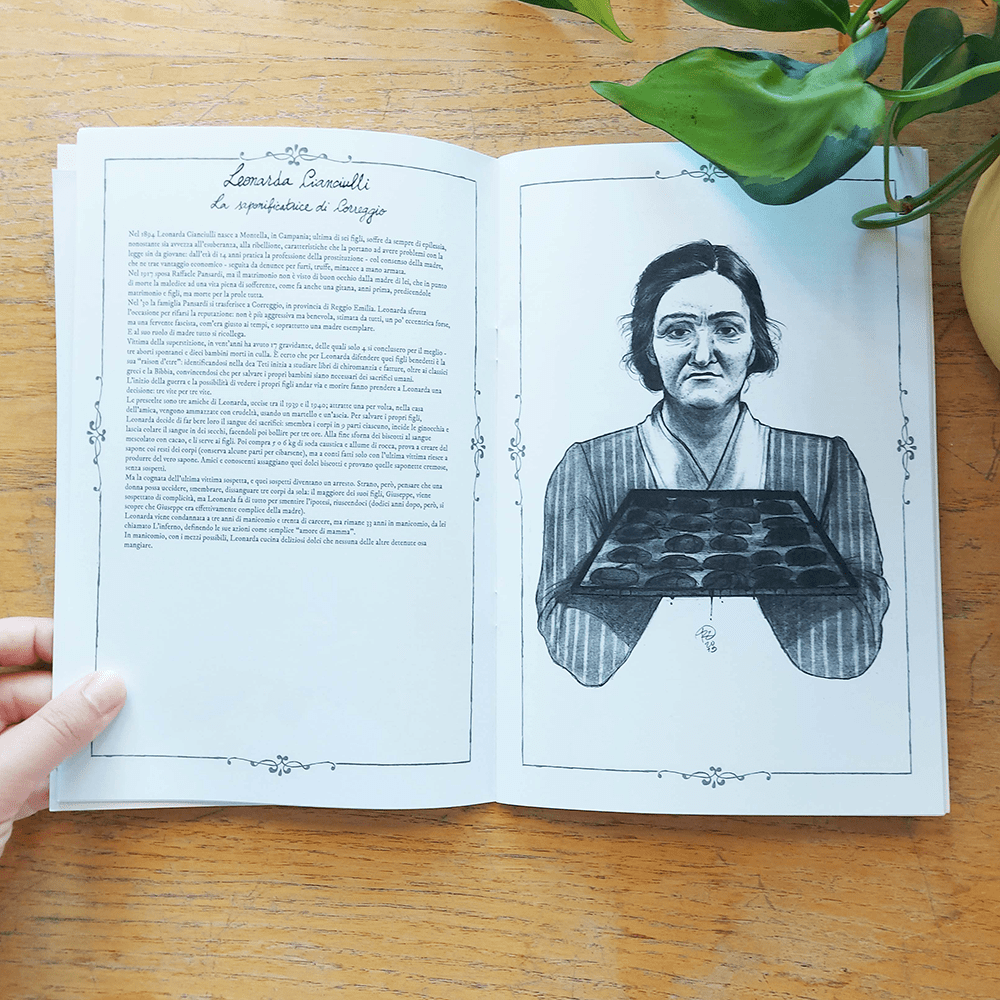 Leonarda Cianciulli
La saponificatrice di Correggio
Nel 1894 Leonarda Cianciulli nasce a Montella, in Campania; ultima di sei figli, soffre da sempre di epilessia,
nonostante sia avvezza all'esuberanza, alla ribellione, caratteristiche che la portano ad avere problemi con la
legge sin da giovane: dall'età di 14 anni pratica la professione della prostituzione - col consenso della madre,
che ne trae vantaggio economico - seguita da denunce per furti, truffe, minacce a mano armata.
Nel 1917 sposa Raffaele Pansardi, ma il matrimonio non è visto di buon occhio dalla madre di lei, che in punto
di morte la maledice ad una vita piena di sofferenze, come fa anche una gitana, anni prima, predicendole
matrimonio e figli, ma morte per la prole tutta.
Nel '30 la famiglia Pansardi si trasferisce a Correggio, in provincia di Reggio Emilia. Leonarda sfrutta
l'occasione per rifarsi la reputazione: non è più aggressiva ma benevola, stimata da tutti, un po' eccentrica forse,
ma una fervente fascista, com'era giusto ai tempi, e soprattutto una madre esemplare.
E al suo ruolo di madre tutto si ricollega.
Vittima della superstizione, in vent'anni ha avuto 17 gravidanze, delle quali solo 4 si conclusero per il meglio -
tre aborti spontanei e dieci bambini morti in culla. È certo che per Leonarda difendere quei figli benedetti è la
sua "raison d'etre": identificandosi nella dea Teti inizia a studiare libri di chiromanzia e fatture, oltre ai classici
greci e la Bibbia, convincendosi che per salvare i propri bambini siano necessari dei sacrifici umani.
L'inizio della guerra e la possibilità di vedere i propri figli andar via e morire fanno prendere a Leonarda una
decisione: tre vite per tre vite.
Le prescelte sono tre amiche di Leonarda, uccise tra il 1939 e il 1940; attratte una per volta, nella casa
dell'amica, vengono ammazzate con crudeltà, usando un martello e un'ascia. Per salvare i propri figli,
Leonarda decide di far bere loro il sangue dei sacrifici: smembra i corpi in 9 parti ciascuno, incide le ginocchia e
lascia colare il sangue in dei secchi, facendoli poi bollire per tre ore. Alla fine sforna dei biscotti al sangue
mescolato con cacao, e li serve ai figli. Poi compra 5 o 6 kg di soda caustica e allume di rocca, prova a creare del
sapone coi resti dei corpi (conserva alcune parti per cibarsene), ma a conti fatti solo con l'ultima vittima riesce a
produrre del vero sapone. Amici e conoscenti assaggiano quei dolci biscotti e provano quelle saponette cremose,
senza sospetti.
Ma la cognata dell'ultima vittima sospetta, e quei sospetti diventano un arresto. Strano, però, pensare che una
donna possa uccidere, smembrare, dissanguare tre corpi da sola: il maggiore dei suoi figli, Giuseppe, viene
sospettato di complicità, ma Leonarda fa di tutto per smentire l'ipotesi, riuscendoci (dodici anni dopo, però, si
scopre che Giuseppe era effettivamente complice della madre).
Leonarda viene condannata a tre anni di manicomio e trenta di carcere, ma rimane 33 anni in manicomio, da lei
chiamato L'inferno, definendo le sue azioni come semplice "amore di mamma".
In manicomio, con i mezzi possibili, Leonarda cucina deliziosi dolci che nessuna delle altre detenute osa
mangiare.